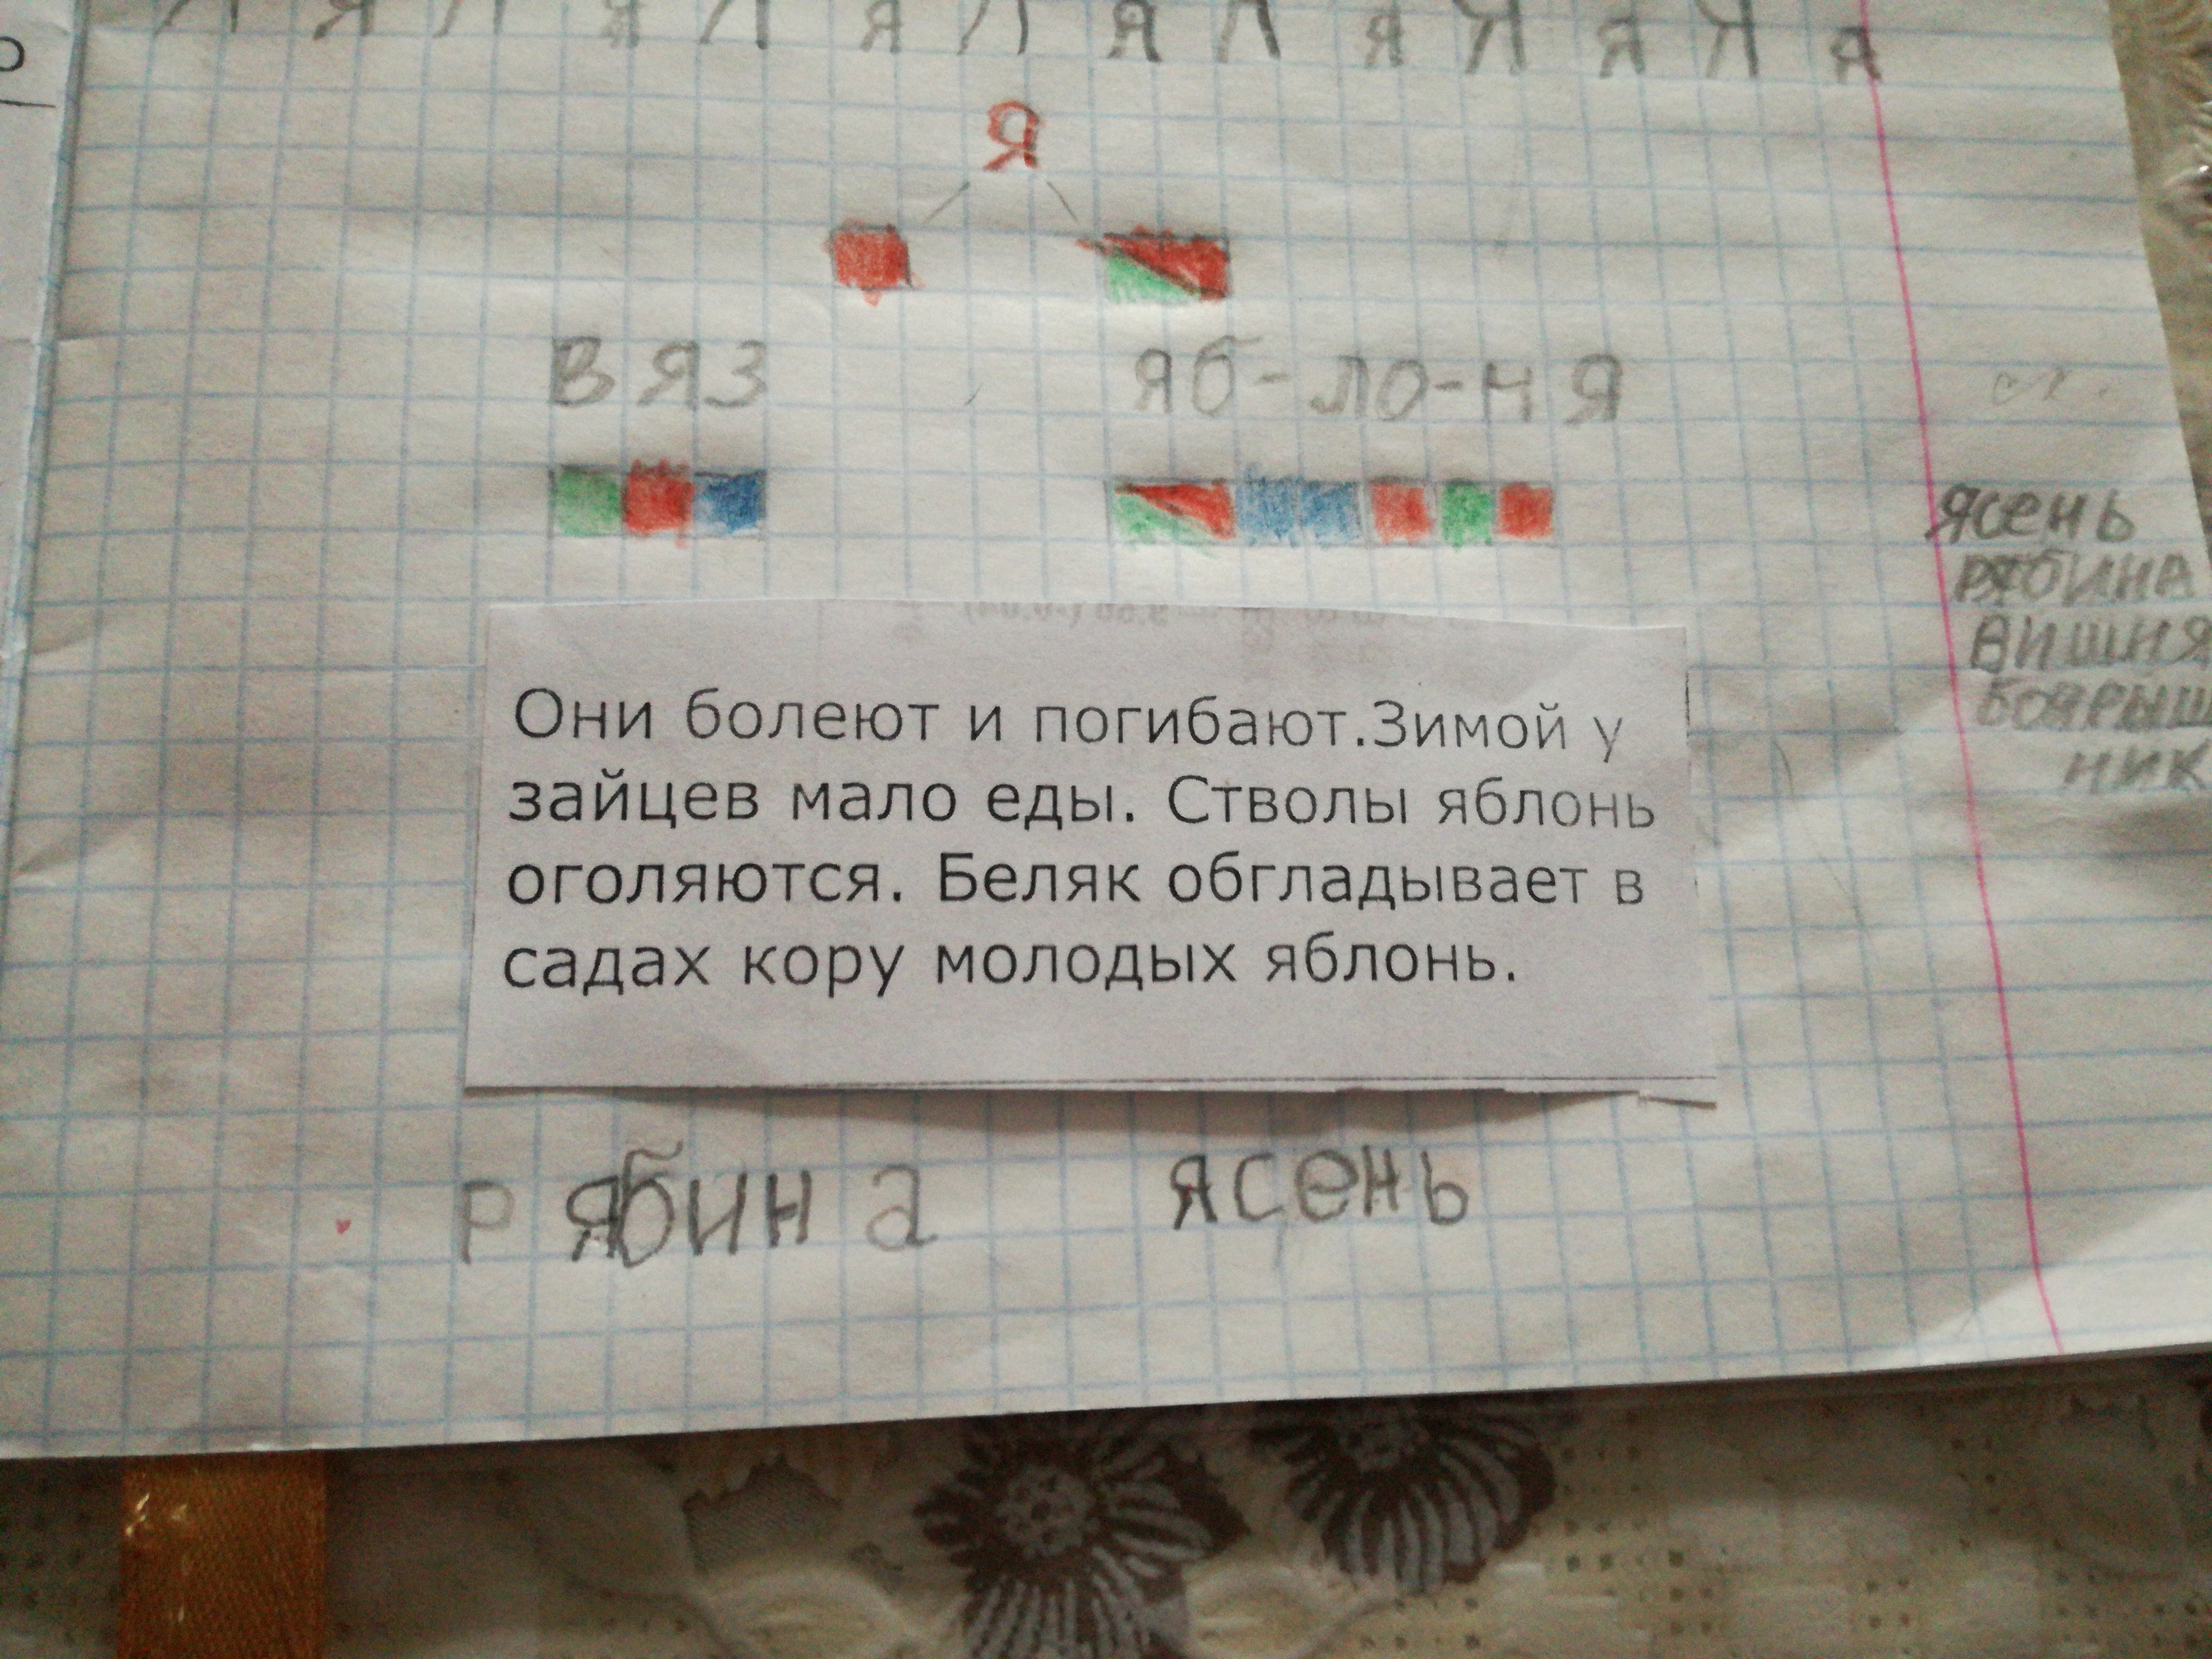 Я Я Я Я Я Я Я Я Я Я Я Я Я Я
Я
вяз
яб-ло-ня
ясень
рябина
вишня
боярыш
ник
Они болеют и погибают.Зимой у
зайцев мало еды. Стволы яблонь
оголяются. Беляк обгладывает в
садах кору молодых яблонь.
рябина ясень